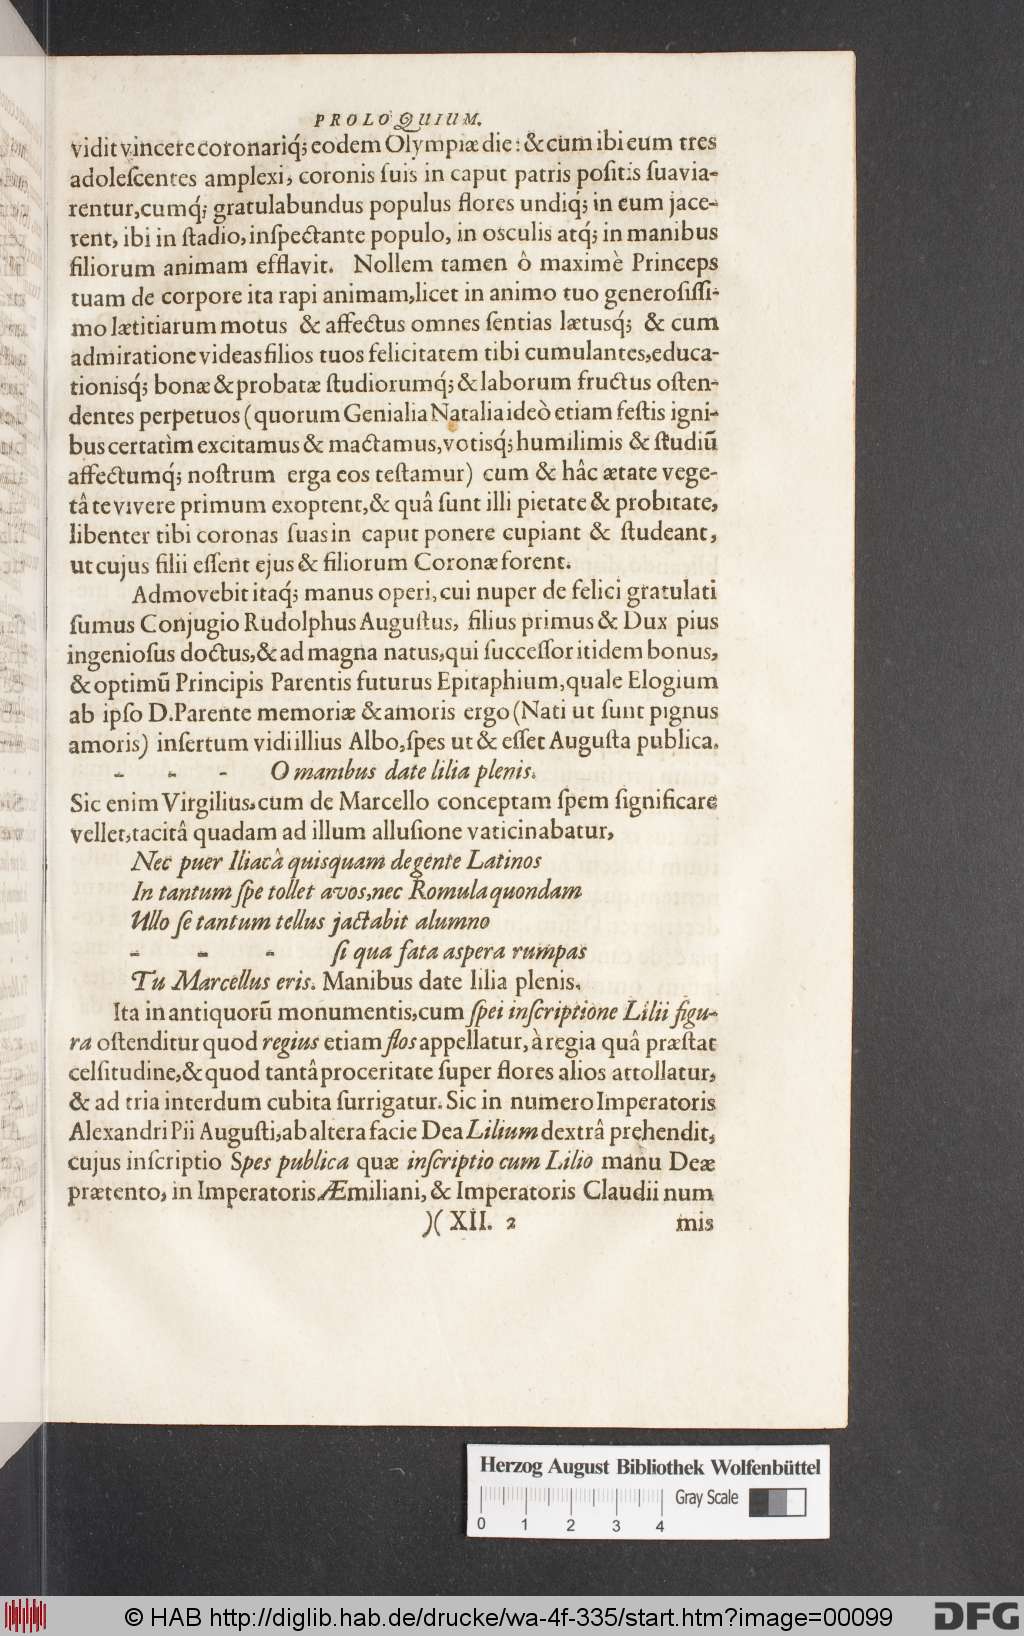 PROLOQUIUM.
vidit vincere coronariq́; eodem Olympiæ die: & cum ibi eum tres
adoleſcentes amplexi, coronis ſuis in caput patris poſitis ſuavia-
rentur, cumq́; gratulabundus populus flores undiq́; in eum jace-
rent, ibi in ſtadio, inſpectante populo, in osculis atq́; in manibus
filiorum animam efflavit. Nollem tamen ô maximè Princeps
tuam de corpore ita rapi animam, licet in animo tuo generoſiſſi-
mo lætitiarum motus & affectus omnes ſentias lætusq́; & cum
admiratione videas filios tuos felicitatem tibi cumulantes, educa-
tionisq́; bonæ & probatæ ſtudiorumq́; & laborum fructus oſten-
dentes perpetuos (quorum Genialia Natalia ideò etiam feſtis igni-
bus certatìm excitamus & mactamus, votisq́; humilimis & ſtudiũ
affectumq́; noſtrum erga eos teſtamur) cum & hâc ætate vege-
tâ te vivere primum exoptent, & quâ ſunt illi pietate & probitate,
libenter tibi coronas ſuas in caput ponere cupiant & ſtudeant,
ut cujus filii eſſent ejus & filiorum Coronæ forent.
Admovebit itaq́; manus operi, cui nuper de felici gratulati
ſumus Conjugio Rudolphus Auguſtus, filius primus & Dux pius
ingenioſus doctus, & ad magna natus, qui ſucceſſor itidem bonus,
& optimũ Principis Parentis futurus Epitaphium, quale Elogium
ab ipſo D. Parente memoriæ & amoris ergo (Nati ut ſunt pignus
amoris) inſertum vidi illius Albo, ſpes ut & eſſet Auguſta publica.
- - - O manibus date lilia plenis.
Sic enim Virgilius, cum de Marcello conceptam ſpem ſignificare
vellet, tacitâ quadam ad illum alluſione vaticinabatur,
Nec puer Iliacâ quisquam de gente Latinos
In tantum ſpe tollet avos, nec Romula quondam
Ullo ſe tantum tellus jactabit alumno
- - - ſi qua fata aspera rumpas
Tu Marcellus eris. Manibus date lilia plenis.
Ita in antiquorũ monumentis, cum ſpei inſcriptione Lilii figu-
ra oſtenditur quod regius etiam flos appellatur, à regia quâ præſtat
celſitudine, & quod tantâ proceritate ſuper flores alios attollatur,
& ad tria interdum cubita ſurrigatur. Sic in numero Imperatoris
Alexandri Pii Auguſti, ab altera facie Dea Lilium dextrâ prehendit,
cujus inſcriptio Spes publica quæ inſcriptio cum Lilio manu Deæ
prætento, in Imperatoris Æmiliani, & Imperatoris Claudii num
)( XII. 2 mis
Herzog August Bibliothek Wolfenbüttel
Gray Scale
0 1 2 3 4
© HAB http://diglib.hab.de/drucke/wa-4f-335/start.htm?image=00099
DFG